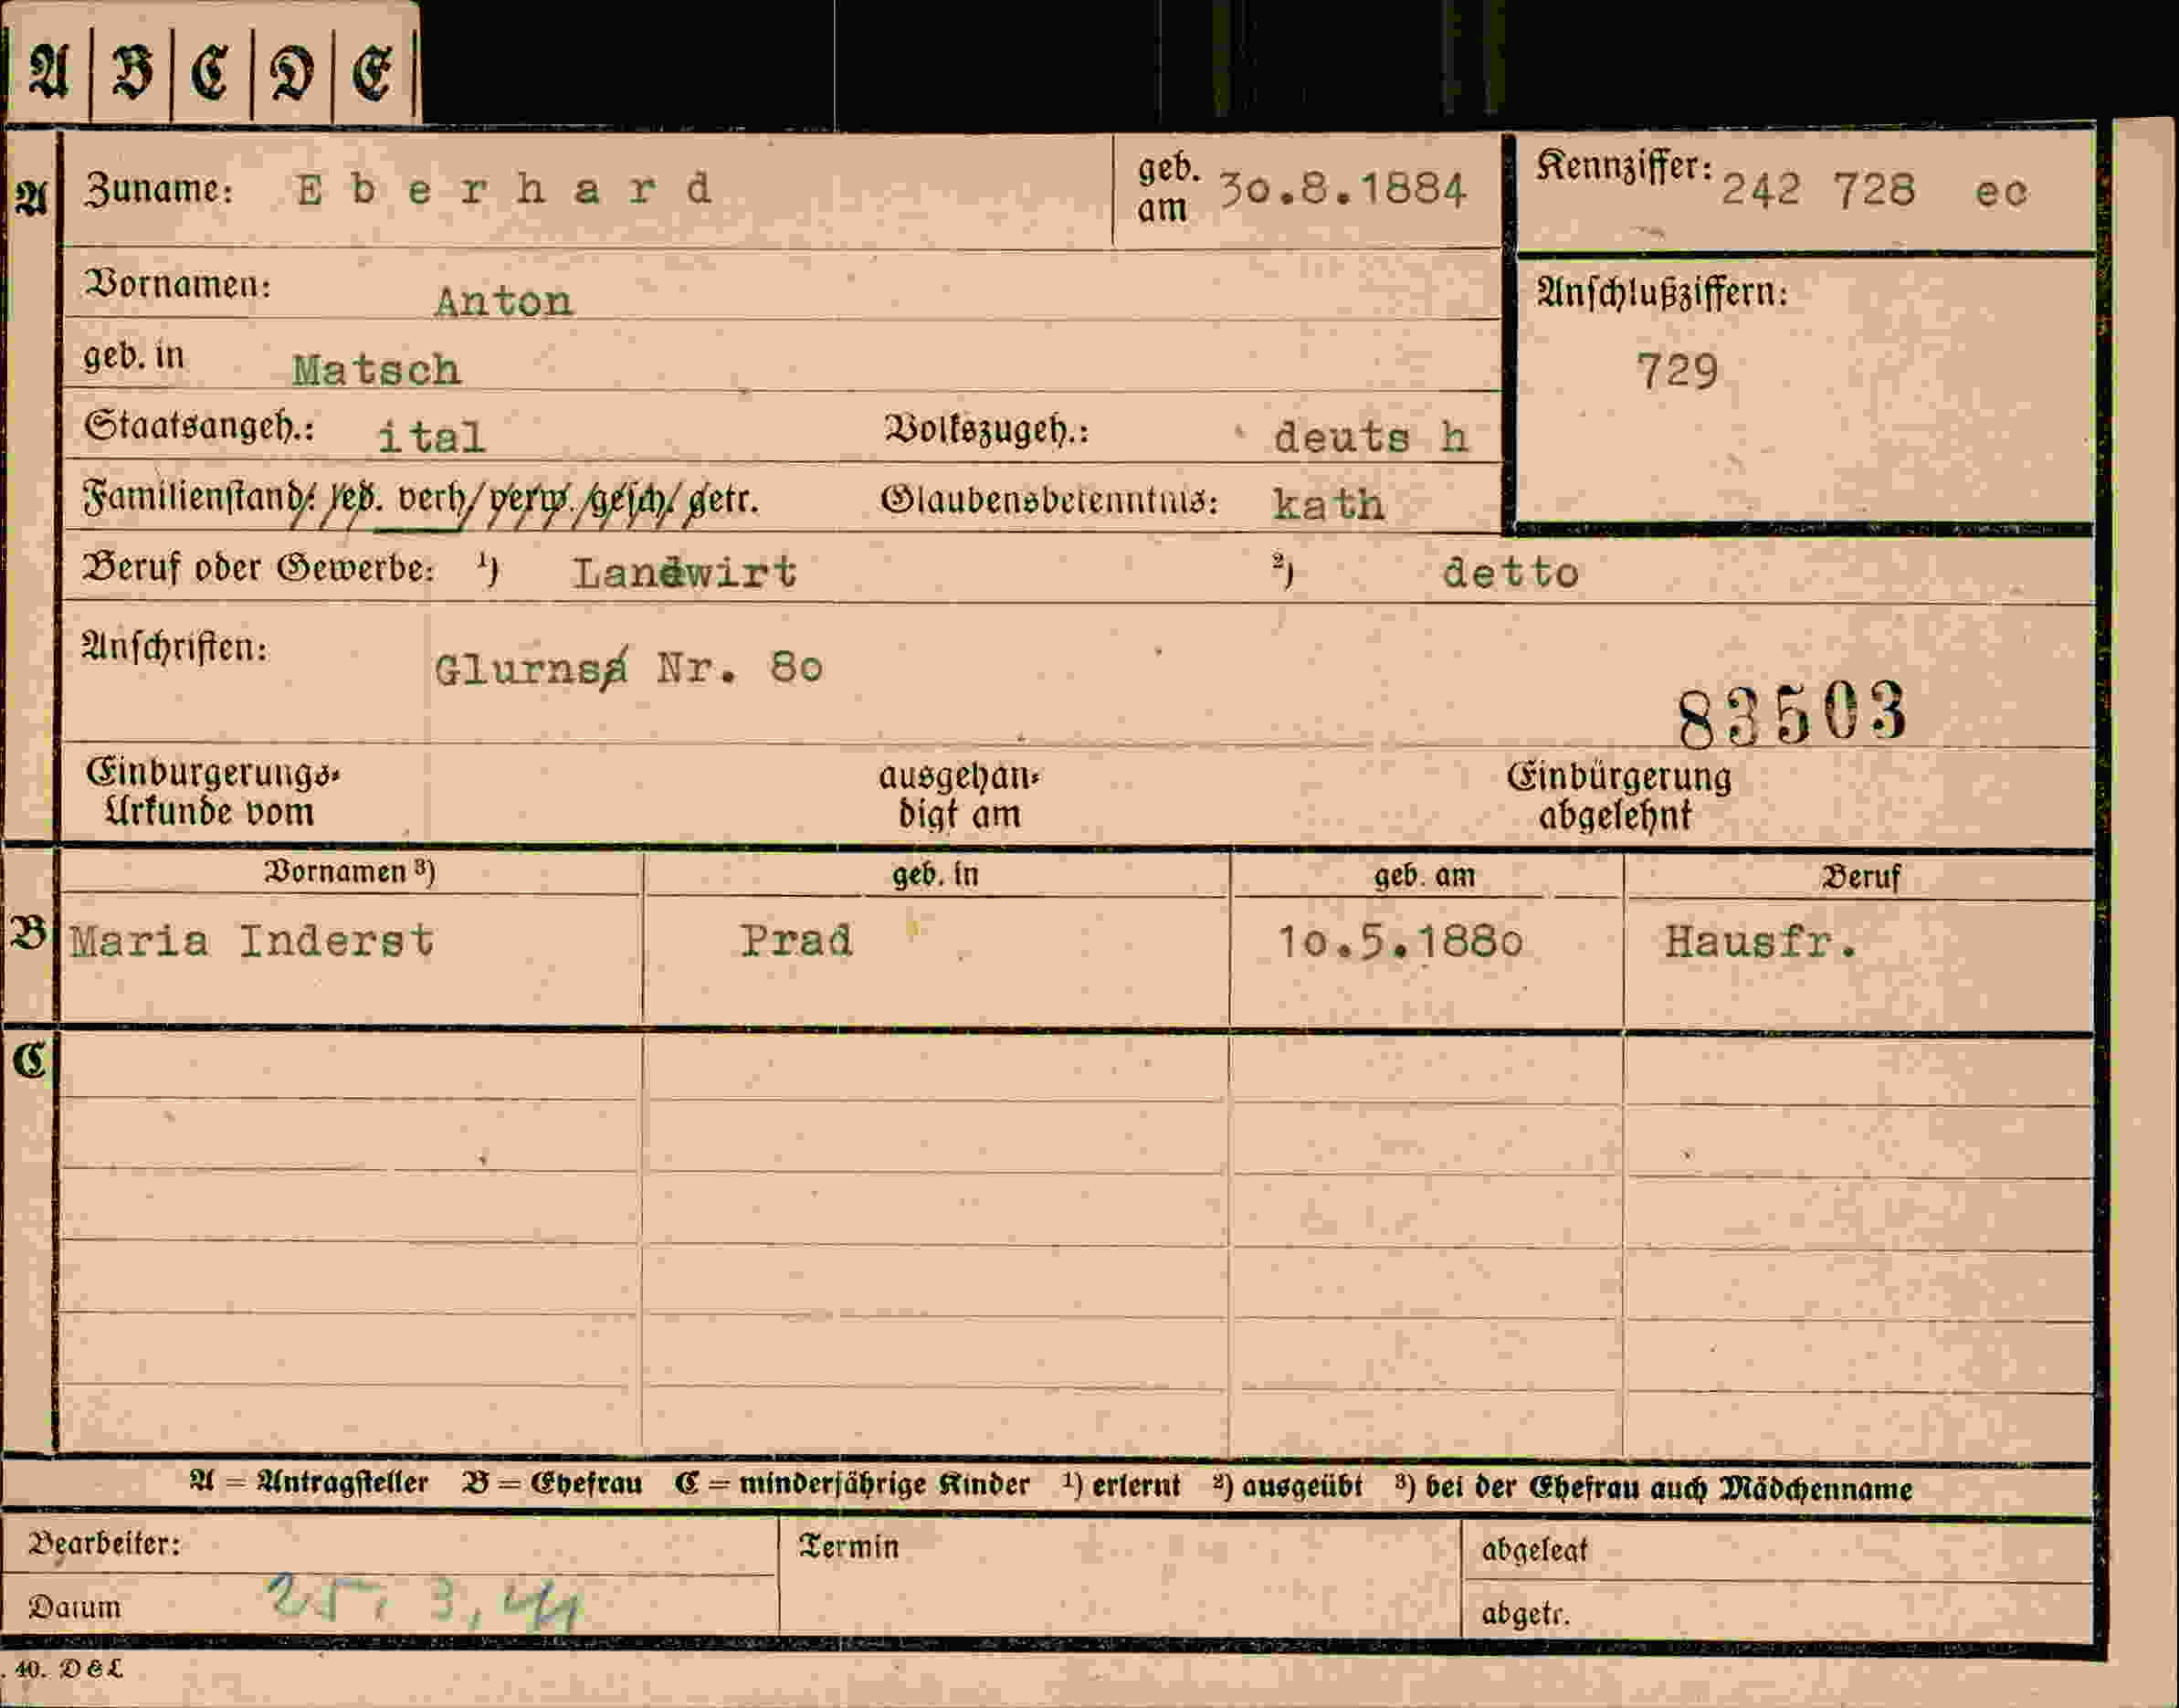 A B C D E
A Zuname: Eberhard geb. am 30.8.1884 Kennziffer: 242 728 eo
Vornamen: Anton Anschlußziffern:
geb. in Matsch 729
Staatsangeh.: ital Volkszugeh.: deuts h
Familienstand: led. verh. verw. gesch. getr. Glaubensbekenntnis: kath
Beruf oder Gewerbe: 1) Landwirt 2) detto
Anschriften: Glurns Nr. 80
83503
Einbürgerungs-
Urkunde vom
ausgehän-
digt am
Einbürgerung
abgelehnt
Vornamen 3) geb. in geb. am Beruf
B Maria Inderst Prad 10.5.1880 Hausfr.
C
A = Antragsteller B = Ehefrau C = minderjährige Kinder 1) erlernt 2) ausgeübt 3) bei der Ehefrau auch Mädchenname
Bearbeiter: Termin abgelegt
Datum 25. 3. 41 abgetr.
. 40. D&L